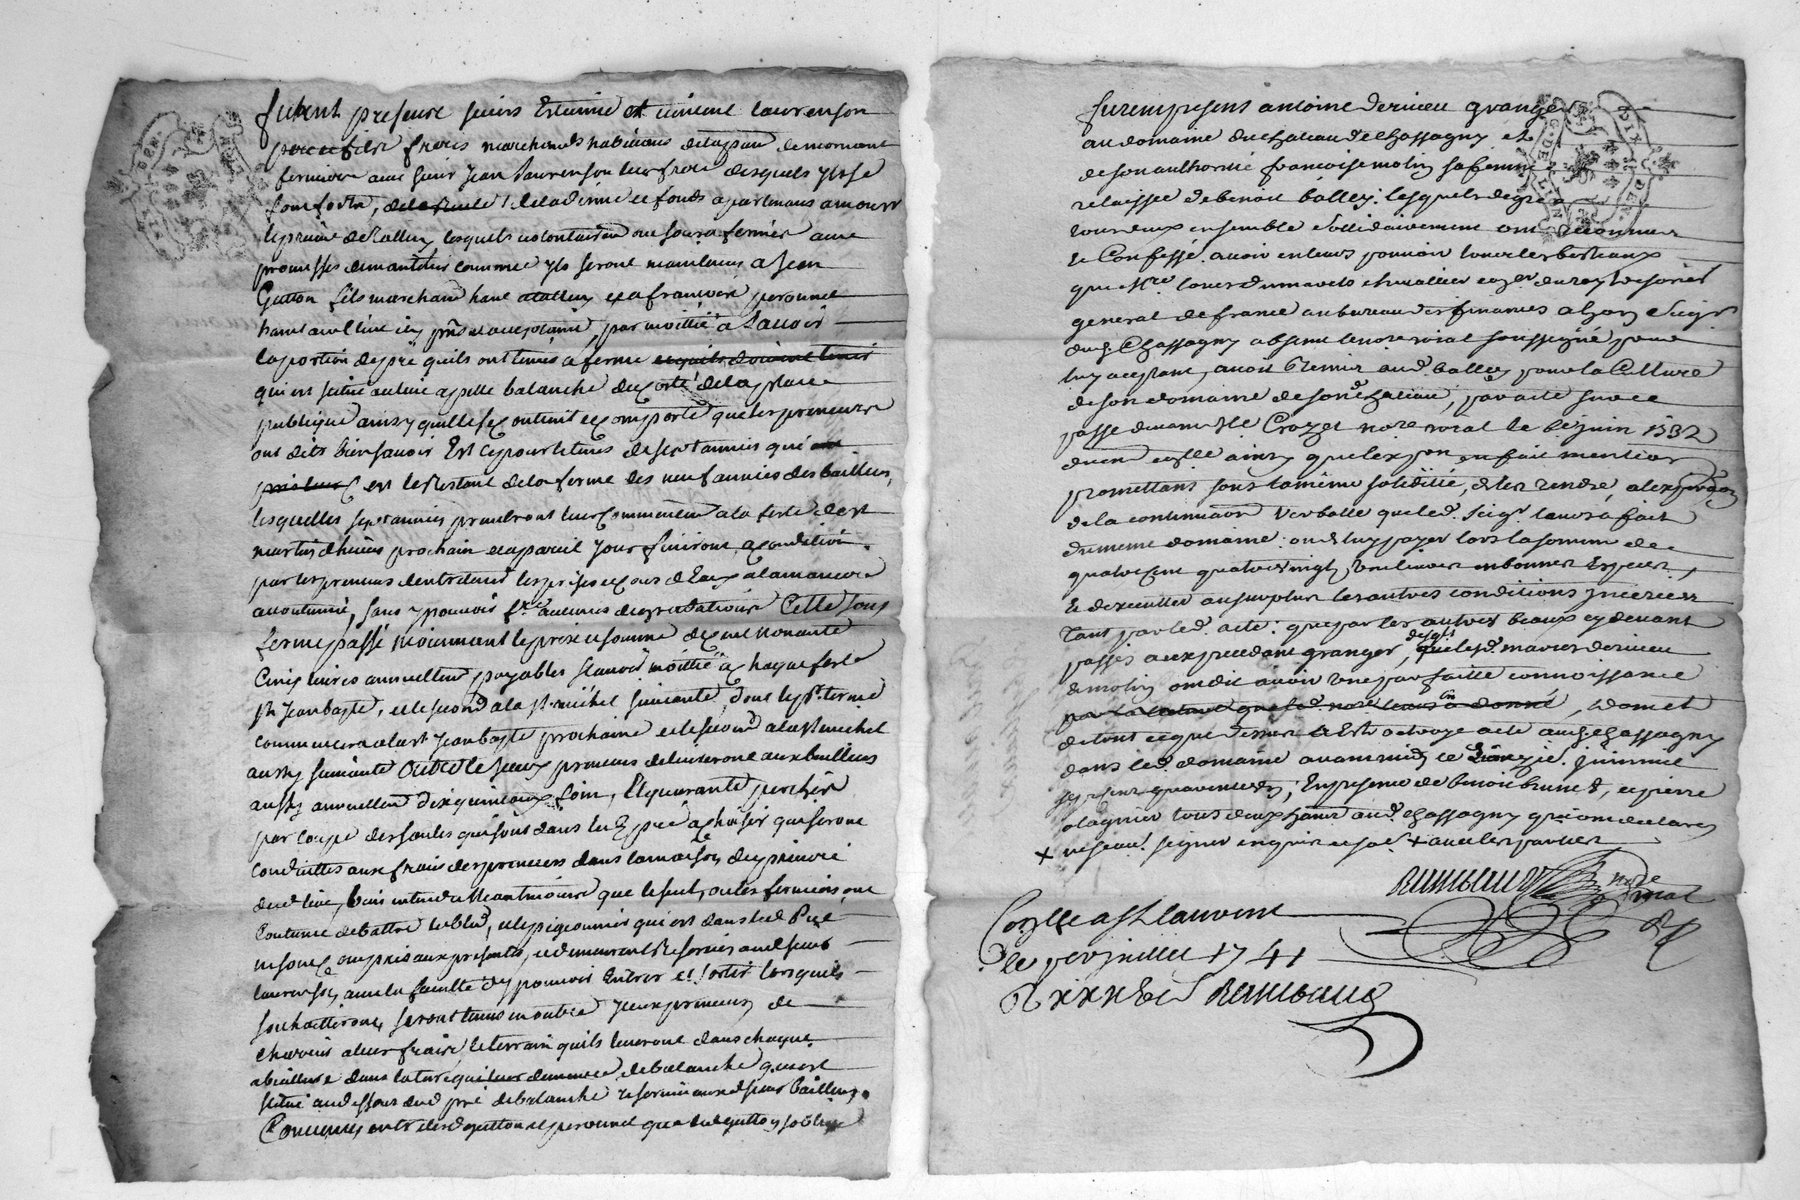 furent presents sieurs Estienne et vincent laurenson
frères marchands habitants de mornant
fermiers avec sieur Jean laurenson leur frere desquels ils se
font forts, de la dixme et fonds apartenants a monsr
le prieur de Tallury lesquels volontairemt ont sousafermés avec
promesses de maintenir comme ils seront maintenus a Jean
Gutton fils marchand habt a tallury et a francoise peronnet
habt audt lieu icy pnts et acceptants, par moittié a scavoir
la portion de pré quils ont tenus a ferme et quils doivent tenir
qui est situé au lieu apellé balanche du costé de la place
publique ainsy quil se contient et comporte que les preneurs
ont dits bien scavoir Est ce pour le tems de sept années qui
est le restant de la ferme des neuf années des bailleurs,
lesquelles sept années prendront leur commencemt a la feste de st
martin d'hivers prochain et a pareil jour finiront, a condition
par les preneurs d'entretenir les prises et cours d'Eaux a la maniere
accoutumée, sans y pouvoir fre aucunes degradations Cette sous
ferme passé moiennant le prix et somme de cent nonante
Cinq livres annuellemt payables scavoir moittié a chaque feste
st Jean bapte, et le second a la st michel suivante, dont le pr terme
commencera a la st Jean bapte prochaine et le second a la st michel
aussy suivante Outre ce seux preneurs delivreront aux bailleurs
aussy annuellemt dix quintaux foin, Et quarante perches
par coupe des saules qui sont dans led pré a choisir qui seront
conduittes aux frais des preneurs dans la maison du prieuré
dud lieu, bien entendu neantmoins que le suel, ou les fermiers ont
coutume de battre le bled, et le pigeonnier qui est dans led Pré
ne sont compris aux presentes, et demeurent reservés auxd sieurs
laurenson avec la faculté dy pouvoir Entrer et sortir lorsquils
souhaitteront, seront tenus en outre iceux preneurs de
charier a leur fraix le terrain quils leveront dans chaque
de balanche qui est
situé au dessous dud pré de balanche reservée auxd sieurs bailleurs.
Convenus entre led gutton et peronnet que led gutton
furent presents antoine derieu granger
au domaine du chateau de chassagny et
de son authorité francoise molin sa femme
relaissée de benoit balley. lesquels de gré
tous deux ensemble solidairement ont reconnus
et Confessé avoir en leurs pouvoir tous les bestiaux
que Mre louis dumarest chevalier coner du roy tresorier
general de france au bureau des finances a lyon Seigr
dud. Chassagny absent le nore roial soussigné pour
luy acceptant, avoit remis aud balley pour la Culture
de son domaine de sond chateau, par acte sur ce
passé devant Me Crozet nore roial le 6e juin 1732
ainsy que lexpon en fait mention
promettans sous la même solidité, de les rendre, a lexpiron
de la continuaon verballe que led. seigr leur a fait
du meme domaine : ou de luy payer lors la somme de
quatre cent quatre vingts livres en bonnes especes,
et dexecuter au surplus les autres conditions inserées
tant par led. acte : que par les autres beaux cy devant
passés aux precedant granger, desqls lesd. mariés derieu
et molin ont dit avoir une parfaitte connoissance
par la lecture que led. nore leurs en a donné,
de tout ce que dessus Est octroyé acte aud. chassagny
dans led. domaine avant midy ce
sept cent quarante un; En presence de benoit brunet, et pierre
olagnier tous deux habts aud. chassagny qui ont declarés
+ ne scavoir signer enquis et som + avec les parties
Raimbaud nore roial
Conllé a St Laurent
le juillet 1741
R xxxx Raimbaud